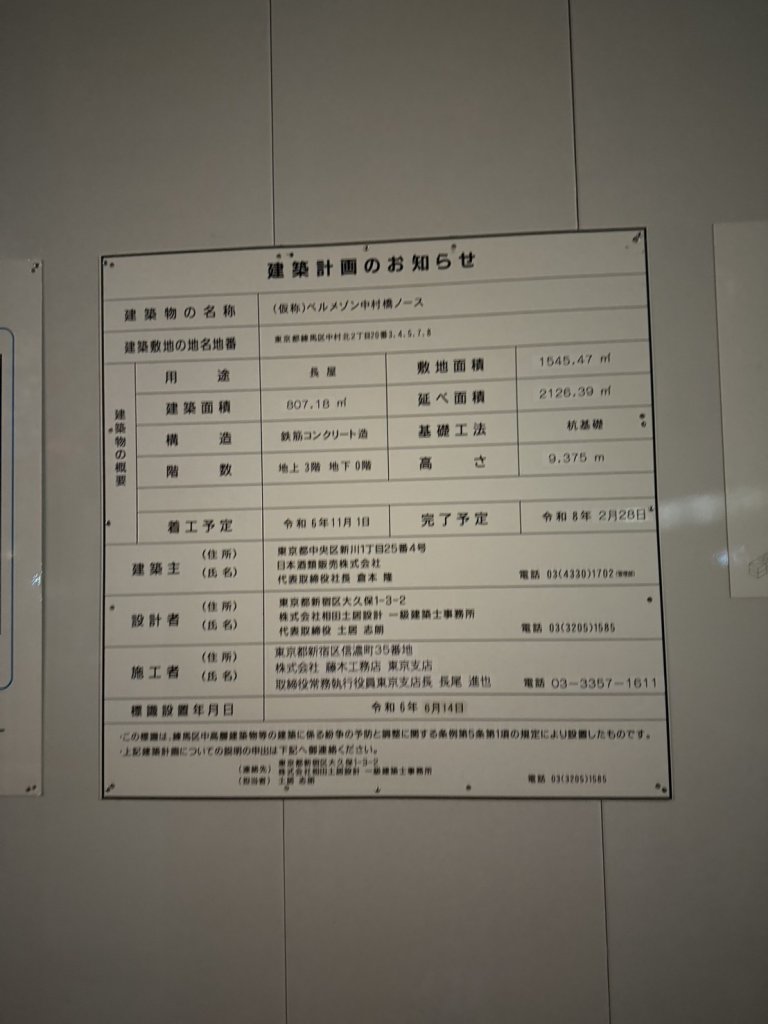 建築計画のお知らせ
建築物の名称 (仮称)ベルメゾン中村橋ノース
建築敷地の地名地番 東京都練馬区中村北2丁目20番3,4,5,7,8
建築物の概要
用途 長屋 敷地面積 1545.47 ㎡
建築面積 807.18 ㎡ 延べ面積 2126.39 ㎡
構造 鉄筋コンクリート造 基礎工法 杭基礎
階数 地上 3階 地下 0階 高さ 9.375 m
着工予定 令和 6年11月 1日 完了予定 令和 8年 2月28日
建築主 (住所) 東京都中央区新川1丁目25番4号
(氏名) 日本酒類販売株式会社
代表取締役社長 倉本 隆 電話 03(4330)1702
設計者 (住所) 東京都新宿区大久保1-3-2
(氏名) 株式会社相田土居設計 一級建築士事務所
代表取締役 土居 志朗 電話 03(3205)1585
施工者 (住所) 東京都新宿区信濃町35番地
(氏名) 株式会社 藤木工務店 東京支店
取締役常務執行役員東京支店長 長尾 進也 電話 03-3357-1611
標識設置年月日 令和 6年 6月14日
・この標識は、練馬区中高層建築物等の建築に係る紛争の予防と調整に関する条例第5条第1項の規定により設置したものです。
・上記建築計画についての説明の申出は下記へ御連絡ください。
(連絡先) 東京都新宿区大久保1-3-2
株式会社相田土居設計 一級建築士事務所
(担当者) 土居 志朗 電話 03(3205)1585